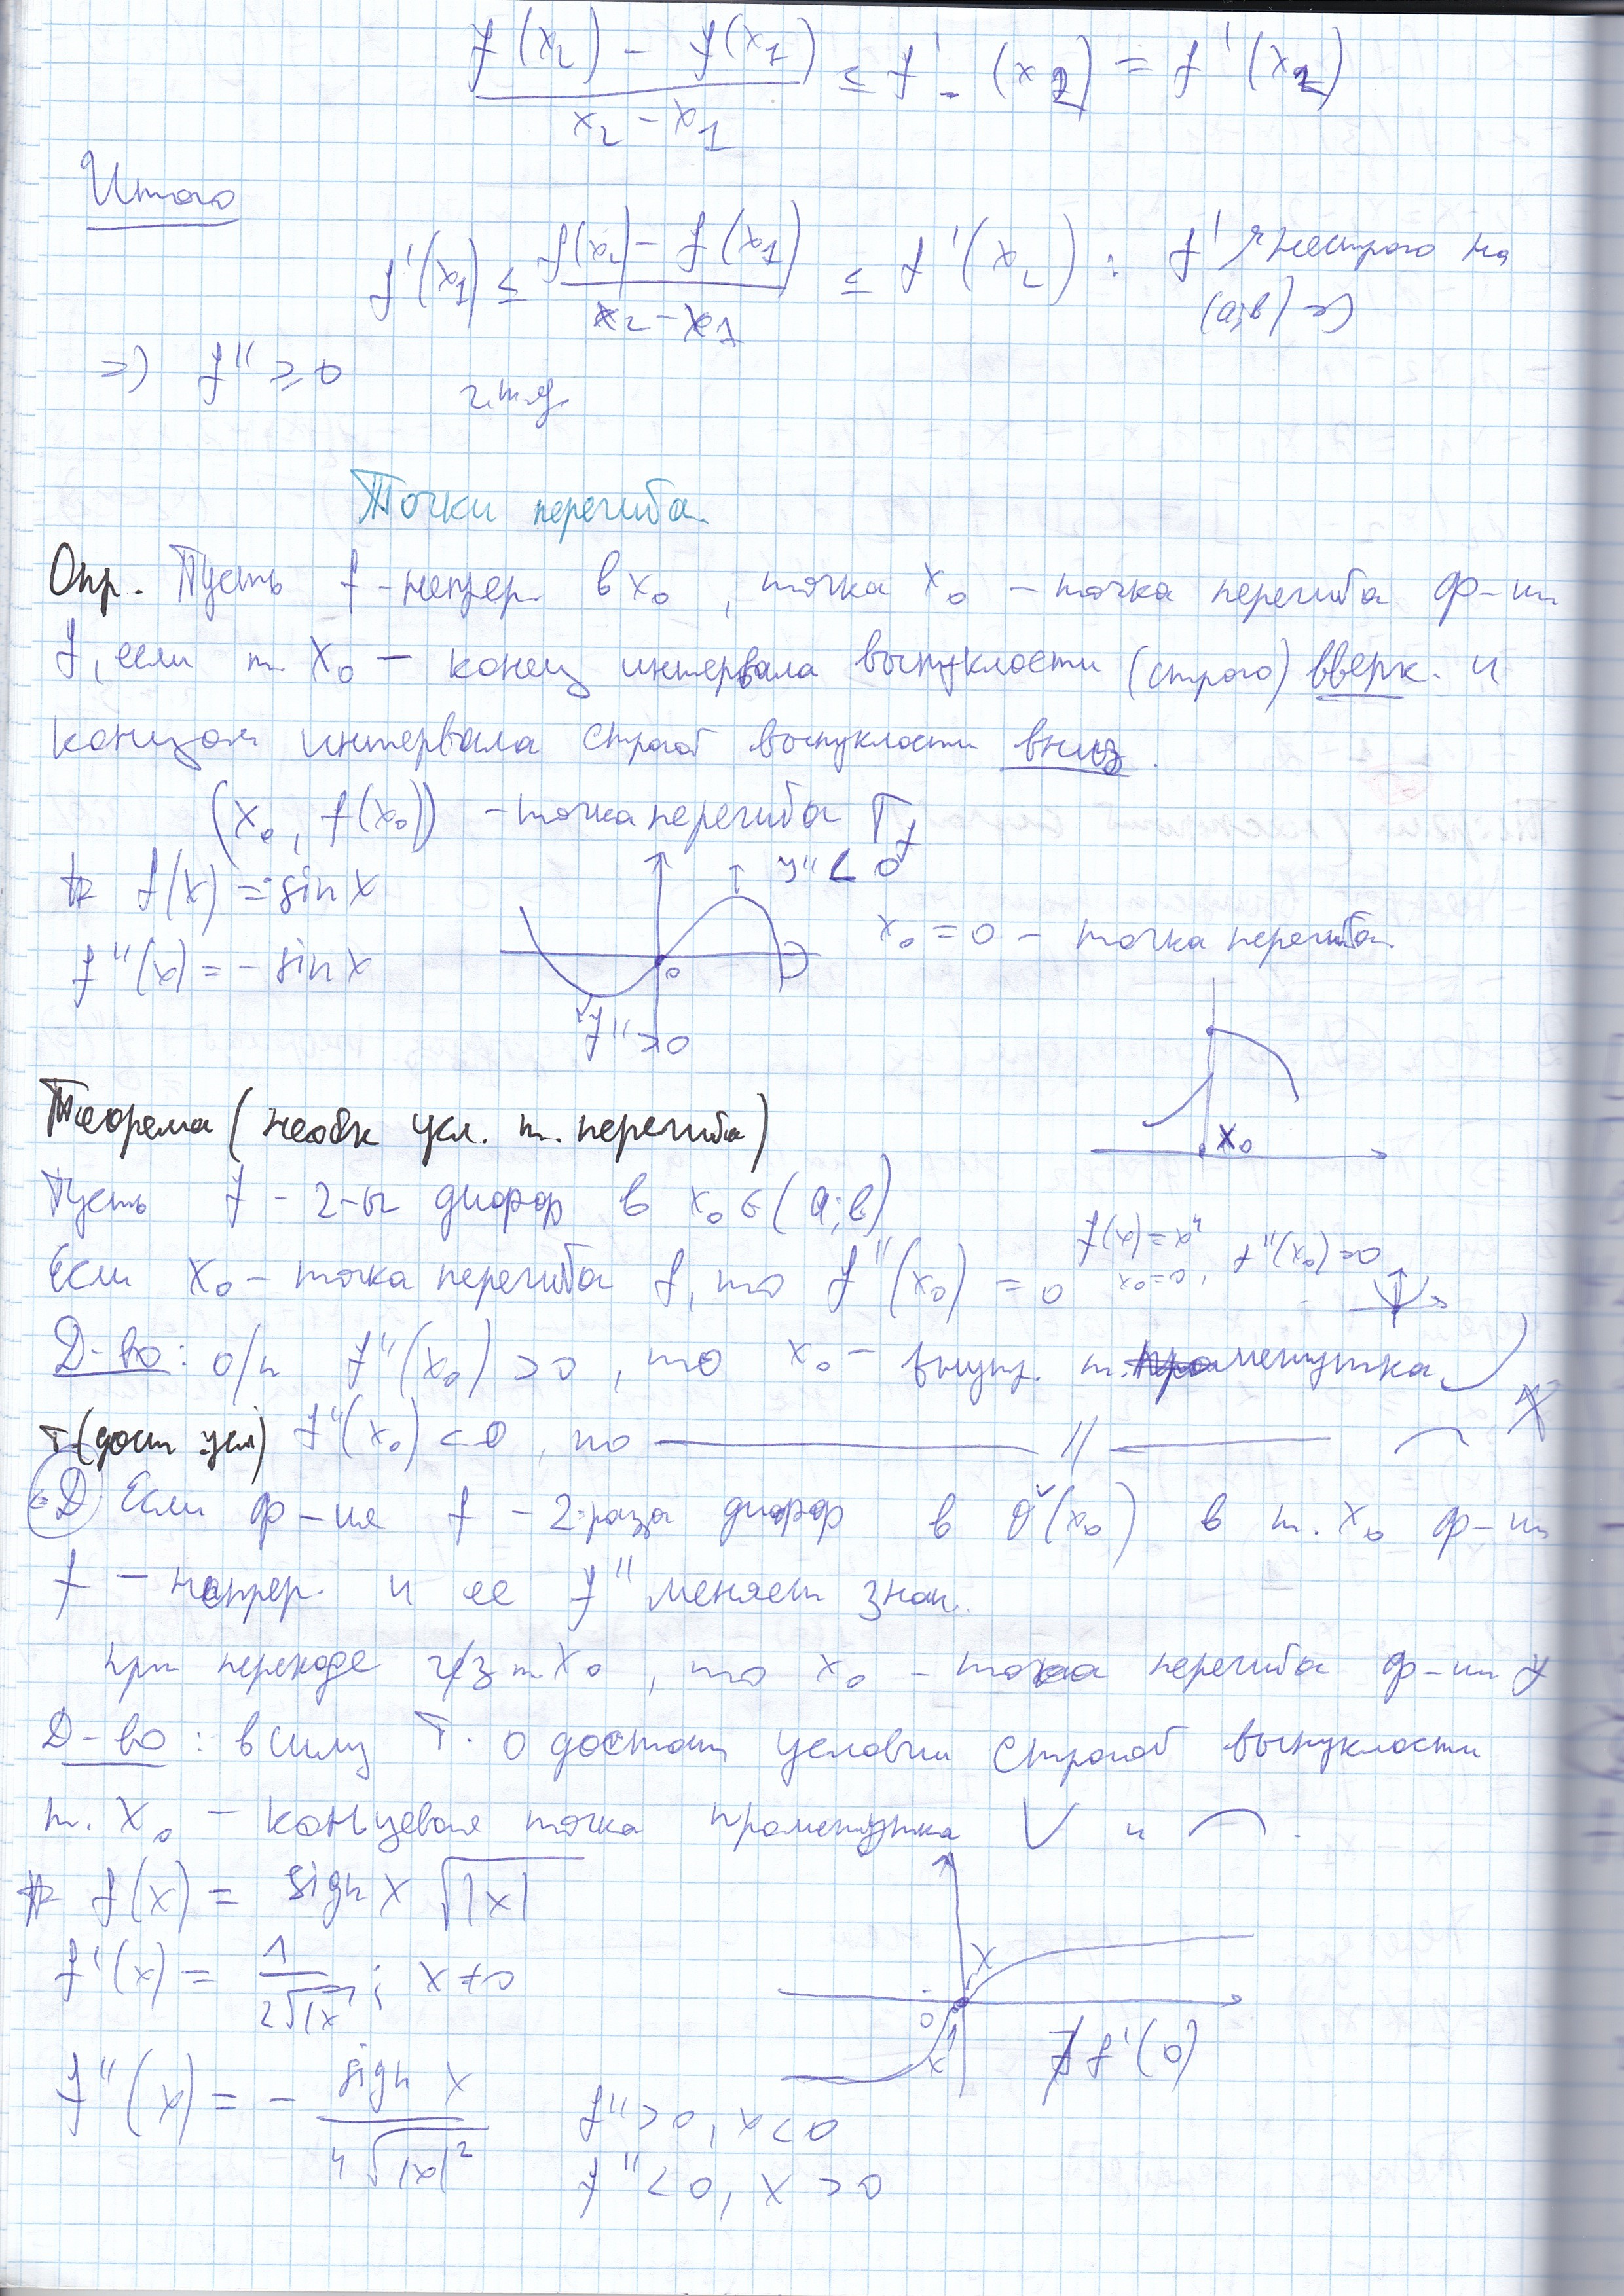 (f(x₂) − f(x₁))/(x₂ − x₁) ≤ f'₋(x₂) = f'(x₂)
Итого
f'(x₁) ≤ (f(x₂) − f(x₁))/(x₂ − x₁) ≤ f'(x₂) : f' ↗ нестрого на
(a;b) ⇒
⇒) f'' ≥ 0 ч.т.д
Точки перегиба.
Опр. Пусть f - непрер. в x₀, точка x₀ – точка перегиба ф-ии
f, если т. x₀ – конец интервала выпуклости (строго) вверх. и
концом интервала строгой выпуклости вниз.
(x₀, f(x₀)) – точка перегиба Г_f
f(x) = sin x
y'' < 0
f''(x) = − sin x
x₀ = 0 – точка перегиба.
0
y'' > 0
x₀
Теорема (необх усл. т. перегиба)
Пусть f - 2-ы дифф в x₀ ∈ (a;b)
f(x) = x⁴
x₀=0, f''(x₀)=0
Если x₀ – точка перегиба f, то f''(x₀) = 0
Д-во: о/п f''(x₀) > 0, то x₀ – внутр. т. промежутка
Т (дост усл) f''(x₀) < 0, то ——— // ———
Если ф-ия f – 2 раза дифф в O̊(x₀) в т. x₀ ф-ии
f – непрер. и ее f'' меняет знак.
при переходе ч/з т x₀, то x₀ – точка перегиба ф-ии f
Д-во: в силу Т. о достат условии строгой выпуклости
т. x₀ – концевая точка промежутка ∪ и ⌒.
f(x) = sign x √|x|
f'(x) = 1/(2√|x|); x ≠ 0
0
∄ f'(0)
f''(x) = − sign x/(4√|x|²)
f'' > 0, x < 0
f'' < 0, x > 0